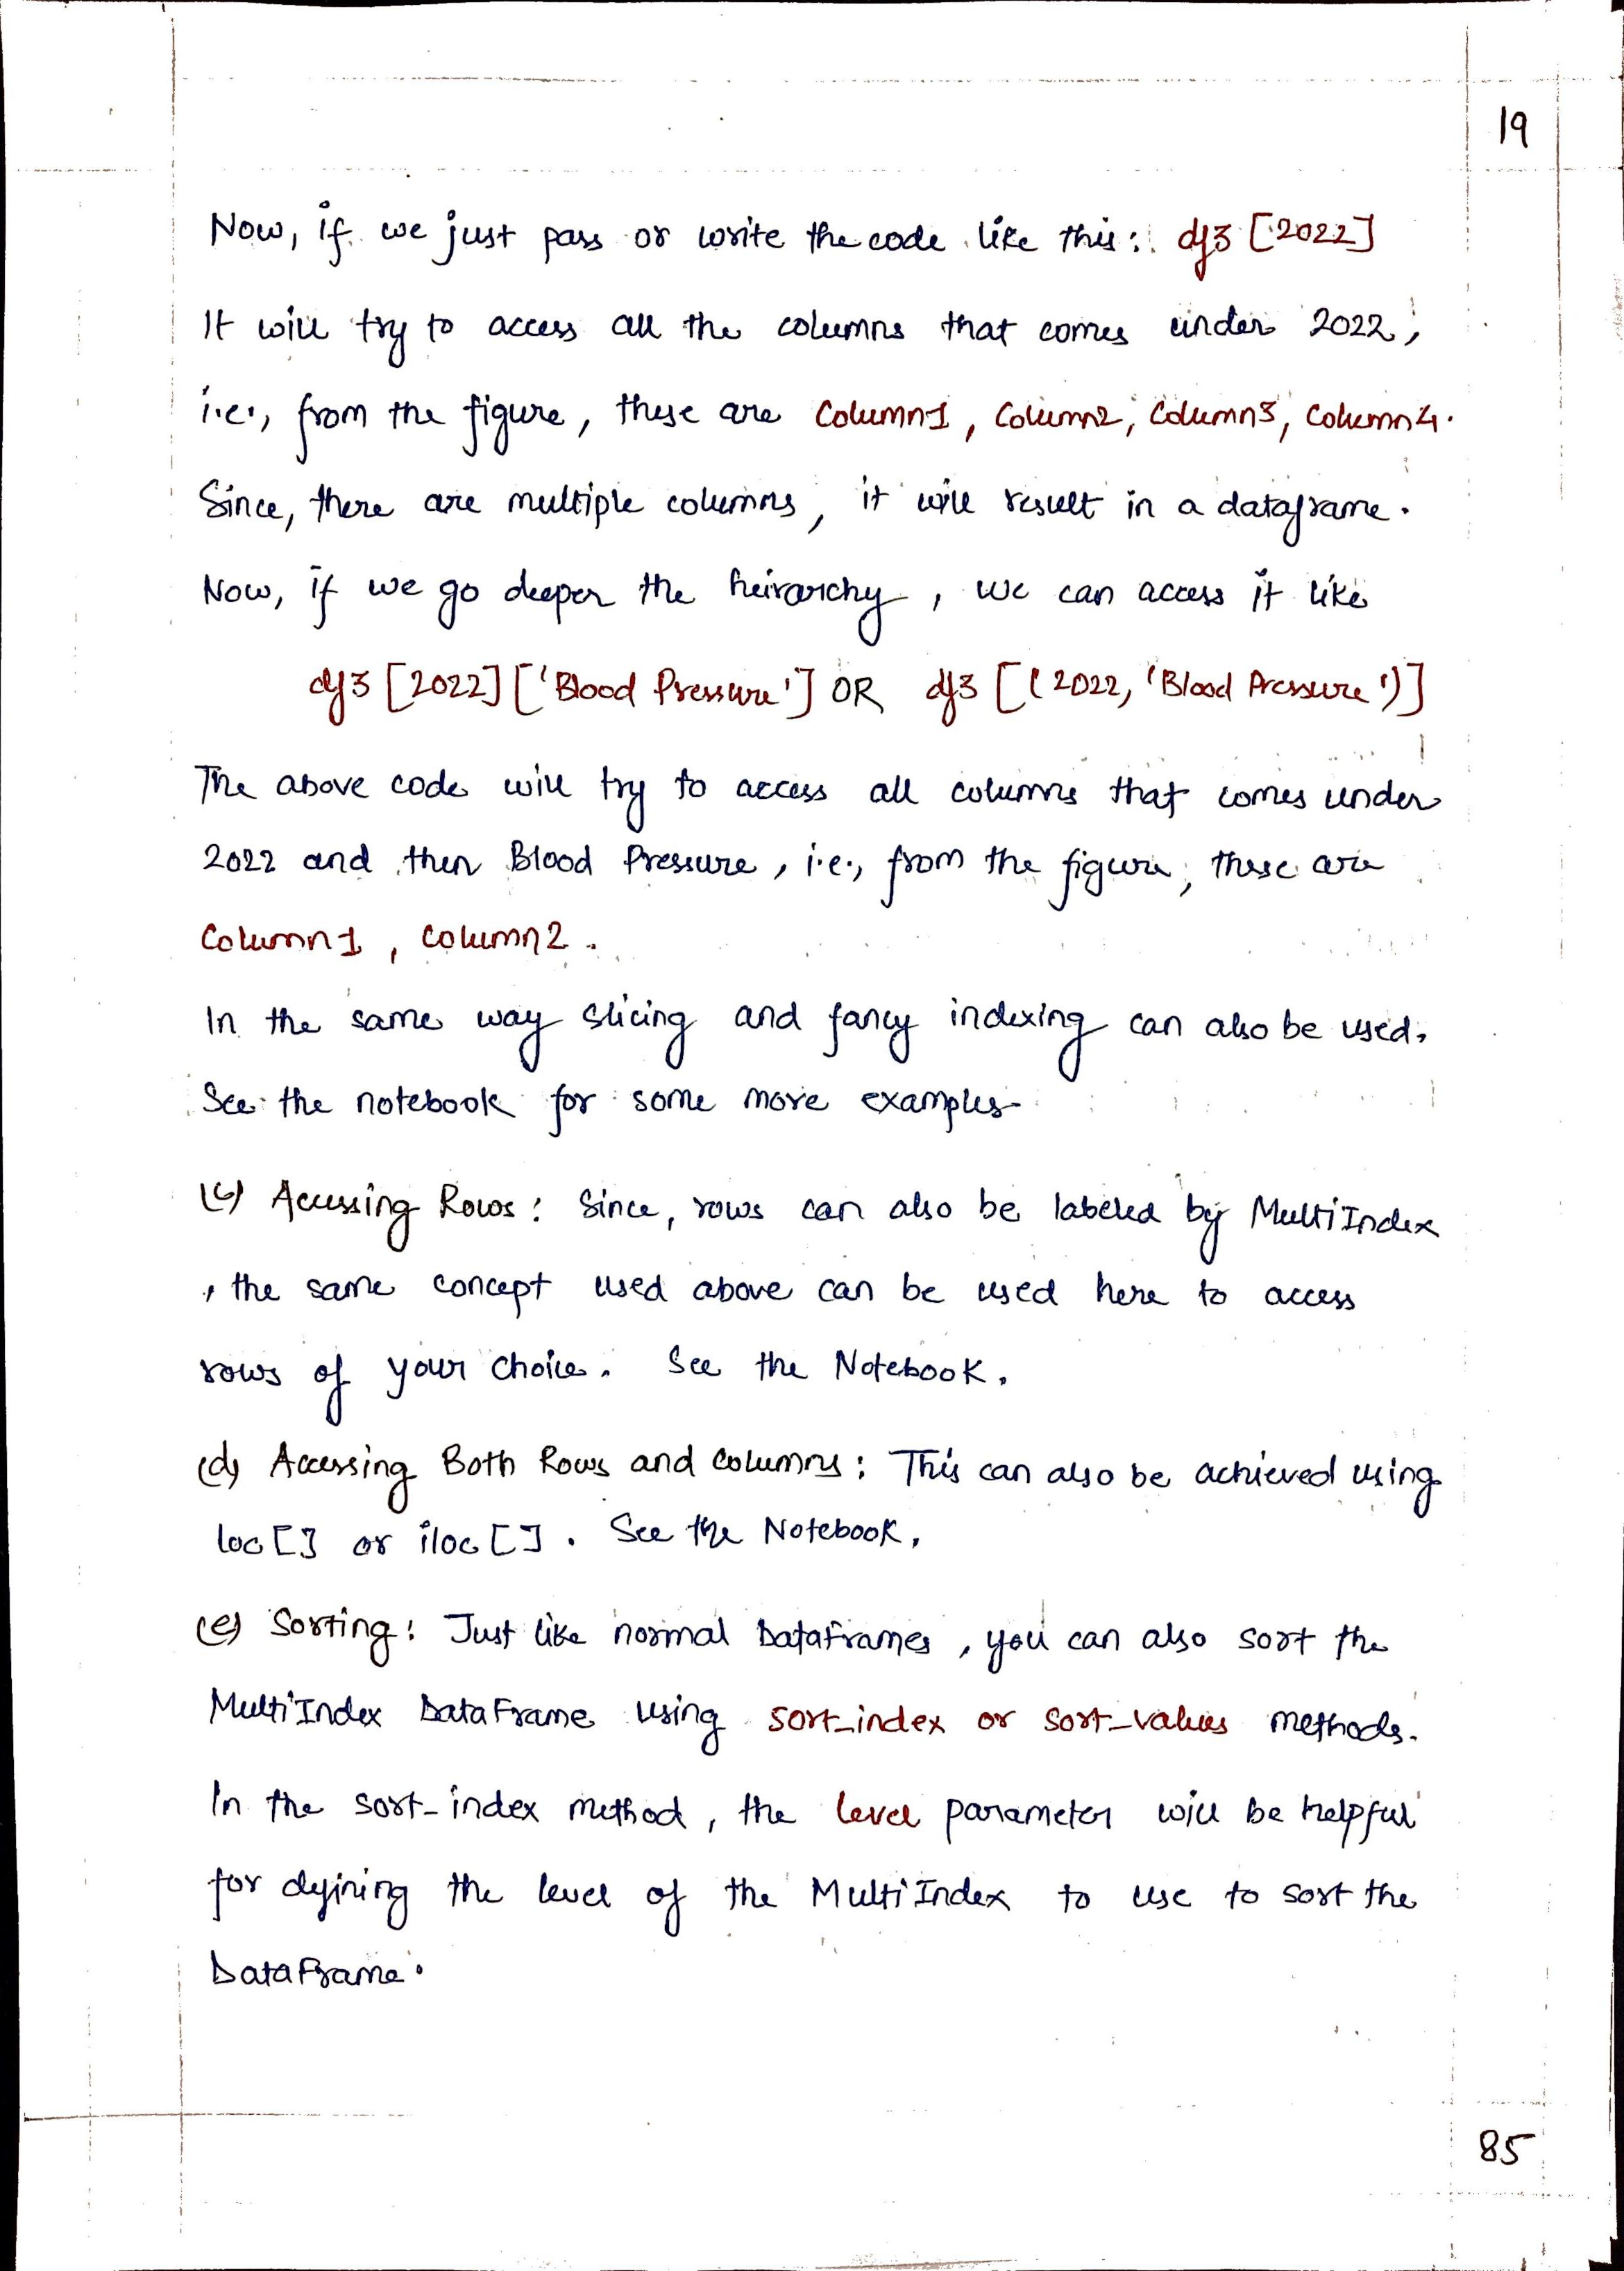 19
Now, if we just pass or write the code like this: df3 [2022]
It will try to access all the columns that comes under 2022,
i.e., from the figure, these are Column1, Column2, Column3, Column4.
Since, there are multiple columns, it will result in a dataframe.
Now, if we go deeper the heirarchy, we can access it like
df3 [2022] ['Blood Pressure'] OR df3 [(2022, 'Blood Pressure')]
The above code will try to access all columns that comes under
2022 and then Blood Pressure, i.e., from the figure, these are
Column1, Column2.
In the same way slicing and fancy indexing can also be used.
See the notebook for some more examples.
(c) Accessing Rows: Since, rows can also be labeled by MultiIndex
, the same concept used above can be used here to access
rows of your choice. See the Notebook.
(d) Accessing Both Rows and Columns: This can also be achieved using
loc[] or iloc[]. See the Notebook.
(e) Sorting: Just like normal DataFrames, you can also sort the
MultiIndex DataFrame using sort_index or sort_values methods.
In the sort_index method, the level parameter will be helpful
for defining the level of the MultiIndex to use to sort the
DataFrame.
85